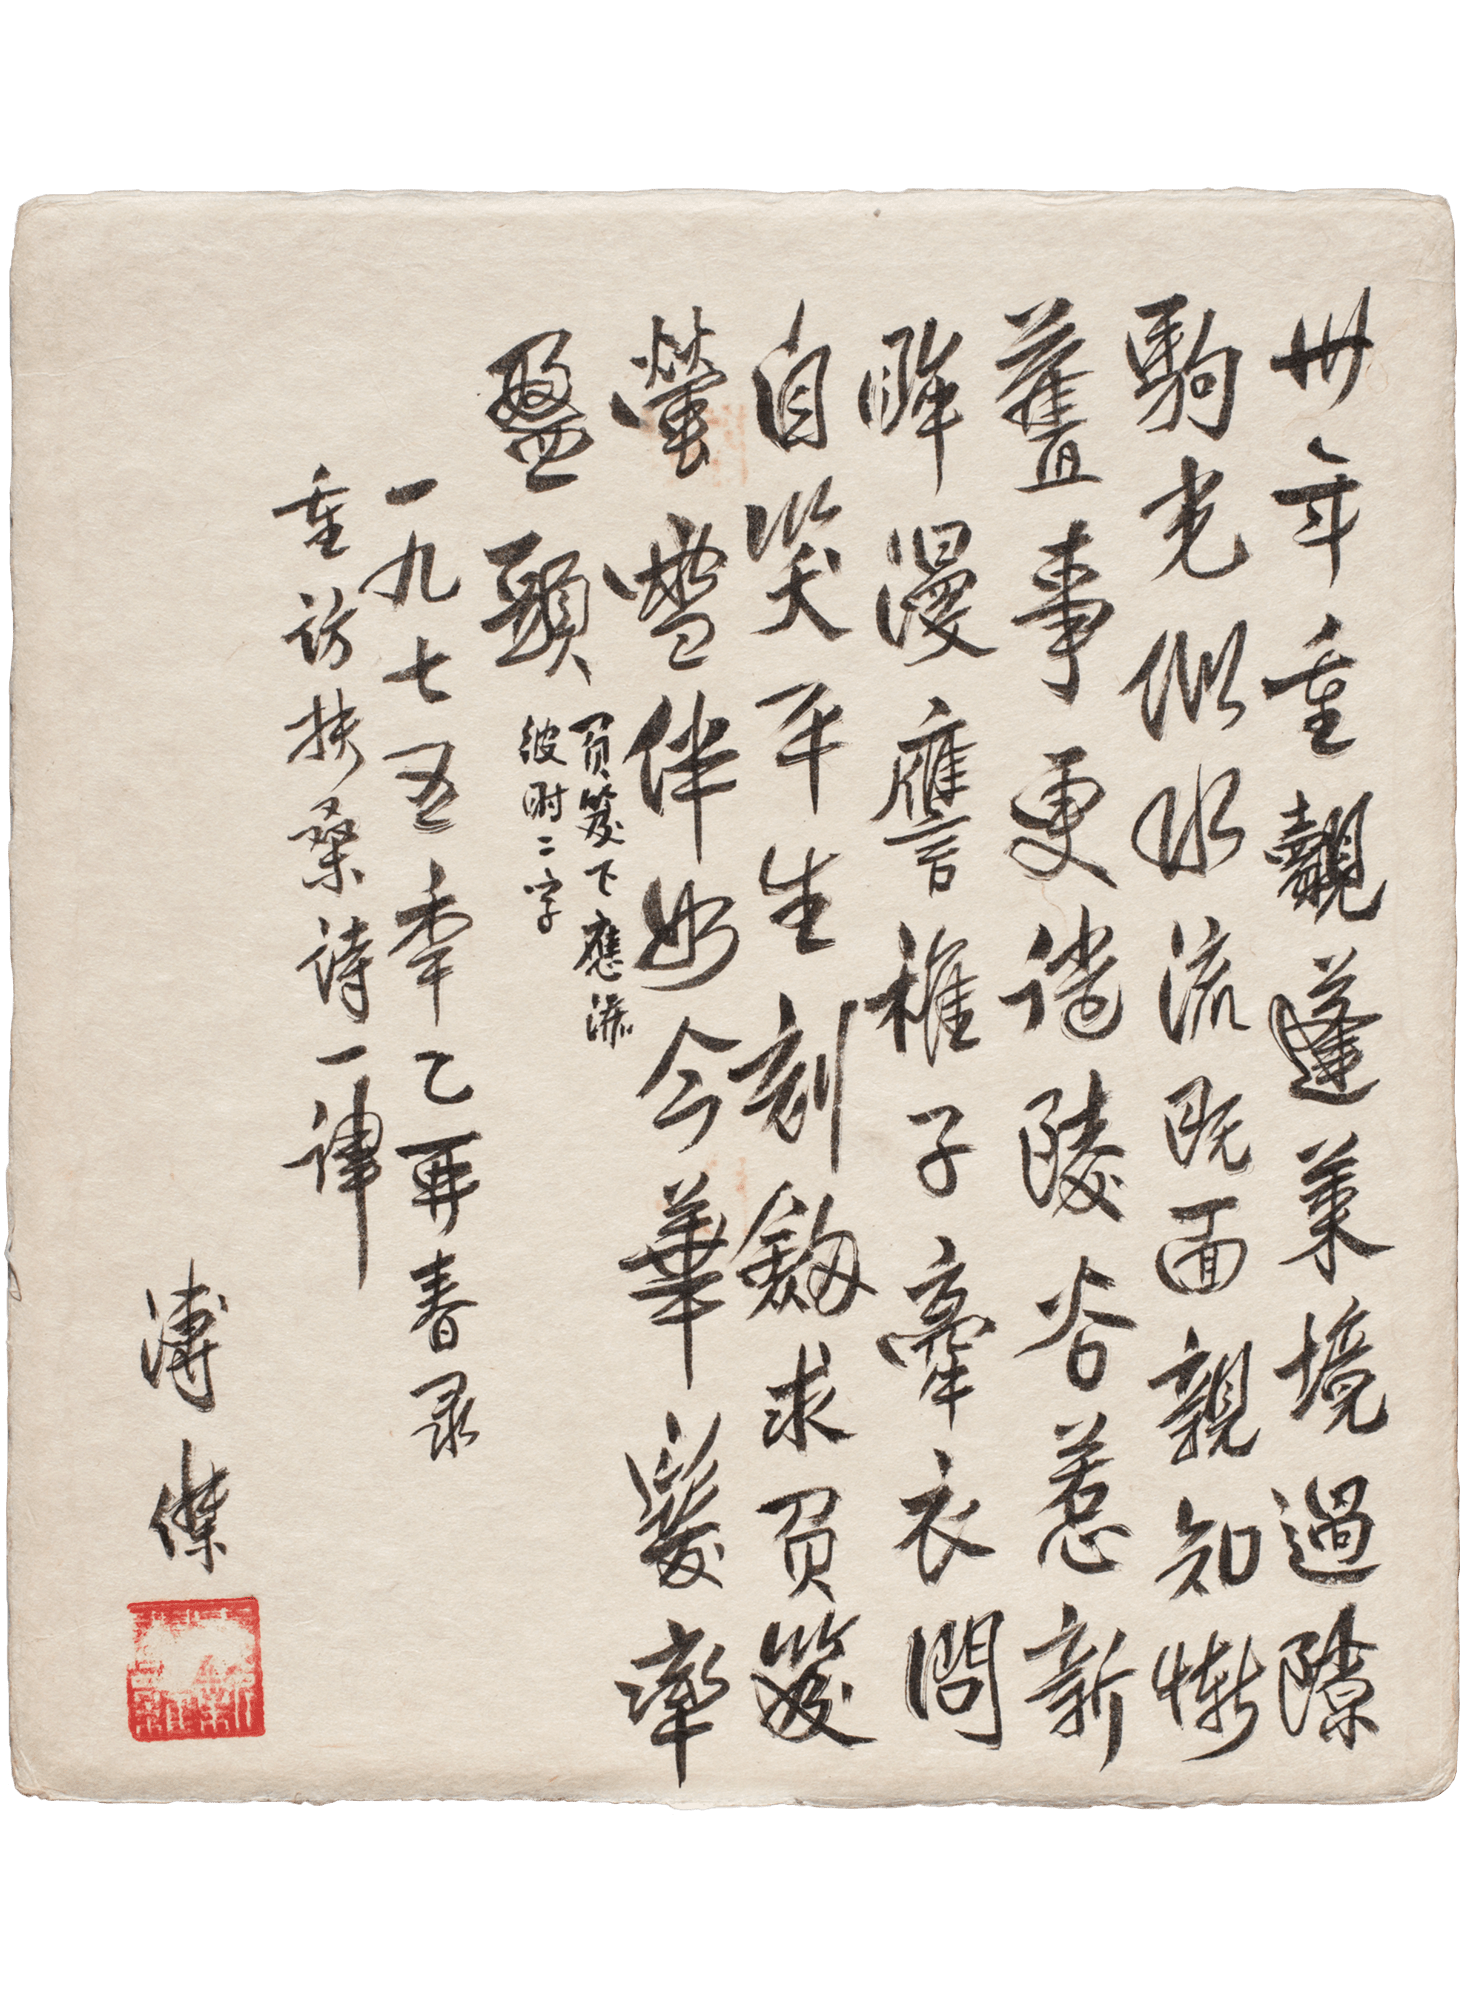 卅年重覿蓬萊境過隙
駒光似水流既面親知慚
舊事更從陵谷惹新
眸漫譍稚子牽衣問
自笑平生刻劔求負笈
螢雪伴如今華髮率
盈頭
負笈下應添
彼时二字
一九七五秊乙丣春录
重訪扶桑詩一律
溥傑